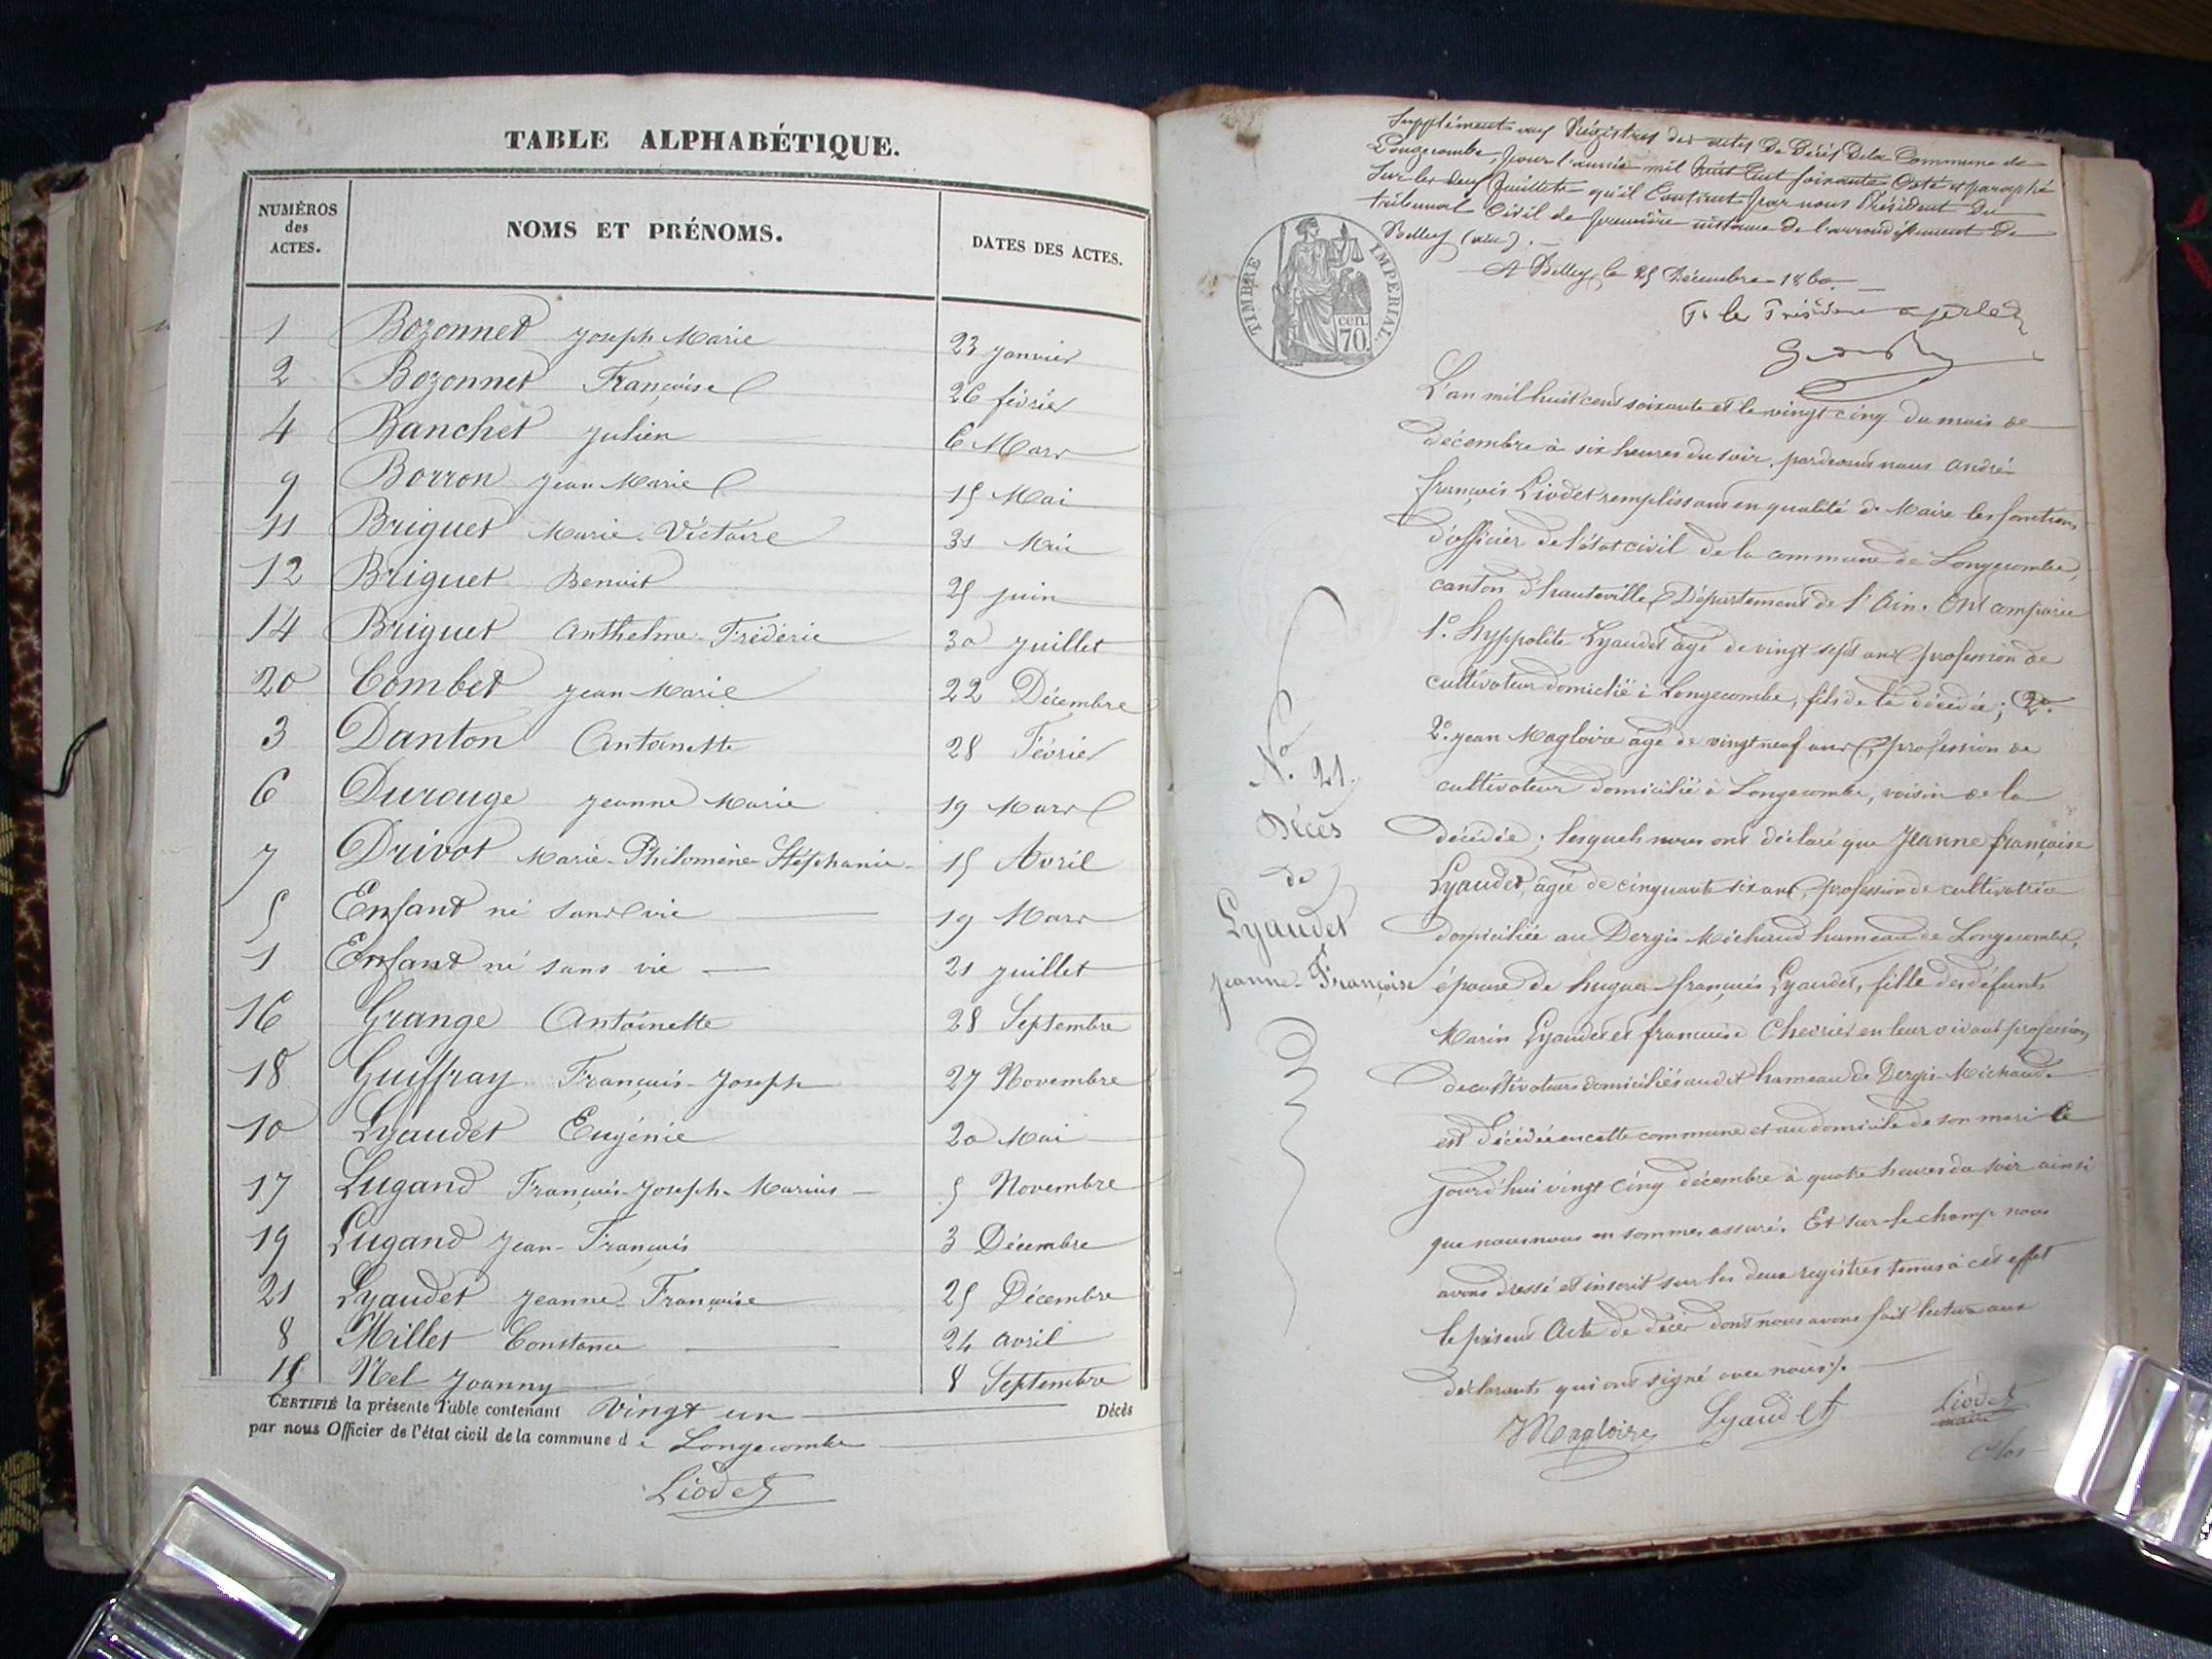 TABLE ALPHABÉTIQUE.
NUMÉROS des ACTES. NOMS ET PRÉNOMS. DATES DES ACTES.
1 Bozonnet Joseph Marie 23 janvier
2 Bozonnet Françoise 26 février
4 Banchet Julien 6 Mars
9 Borron Jean Marie 15 Mai
11 Briguet Marie-Victoire 31 Mai
12 Briguet Benoit 25 juin
14 Briguet Anthelme-Frédéric 30 Juillet
20 Combet Jean Marie 22 Décembre
3 Danton Antoinette 28 Février
6 Durouge Jeanne Marie 19 Mars
7 Drivot Marie-Philomène-Stéphanie 15 Avril
5 Enfant né sans vie 19 Mars
1 Enfant né sans vie 21 juillet
16 Grange Antoinette 28 Septembre
18 Guiffray François-Joseph 27 Novembre
10 Lyaudet Eugénie 20 Mai
17 Lugand François-Joseph-Marius 5 Novembre
19 Lugand Jean-François 3 Décembre
21 Lyaudet Jeanne-Françoise 25 Décembre
8 Millet Constance 24 avril
15 Nel Joanny 8 Septembre
CERTIFIÉ la présente Table contenant Vingt un Décès
par nous Officier de l'état civil de la commune de Longecombe
Liodet
Supplément aux Régistres des actes de Décès de la Commune de
Longecombe, pour l'année mil huit Cent soixante Coté et paraphé
Sur les deux feuillets qu'il Contient par nous Président du
tribunal Civil de première instance de l'arrondissement de
Belley (ain).
A Belley, le 25 Décembre 1860.
TIMBRE IMPERIAL.
70 cen
L'an mil huit cent soixante et le vingt cinq du mois de
décembre à six heures du soir, pardevant nous André
françois Liodet remplissant en qualité de Maire les fonctions
d'officier de l'état civil de la commune de Longecombe,
canton d'hauteville, Département de l'Ain. Ont comparu
1º. Hyppolite Lyaudet âgé de vingt sept ans profession de
cultivateur domicilié à Longecombe, fils de la décédée; 2º.
2º. Jean Magloire âgé de vingt neuf ans, profession de
cultivateur domicilié à Longecombe, voisin de la
décédée; lesquels nous ont déclaré que Jeanne françoise
Lyaudet, âgée de cinquante six ans, profession de cultivatrice
domiciliée au Dergis-Michaud hameau de Longecombe,
épouse de hugues françois Lyaudet, fille des défunts
Marin Lyaudet et françoise Chevrier en leur vivant profession
de cultivateurs domiciliés audit hameau de Dergis-Michaud.
est décédée en cette commune et au domicile de son mari ce
jourd'hui vingt cinq décembre à quatre heures du soir ainsi
que nous nous en sommes assuré. Et sur-le-champ nous
avons dressé et inscrit sur les deux registres tenus à cet effet
le présent Acte de décès dont nous avons fait lecture aux
déclarants qui ont signé avec nous.
Nº. 21.
Décès
de
Lyaudet
Jeanne-Françoise
JMagloire Lyaudet Liodet
maire